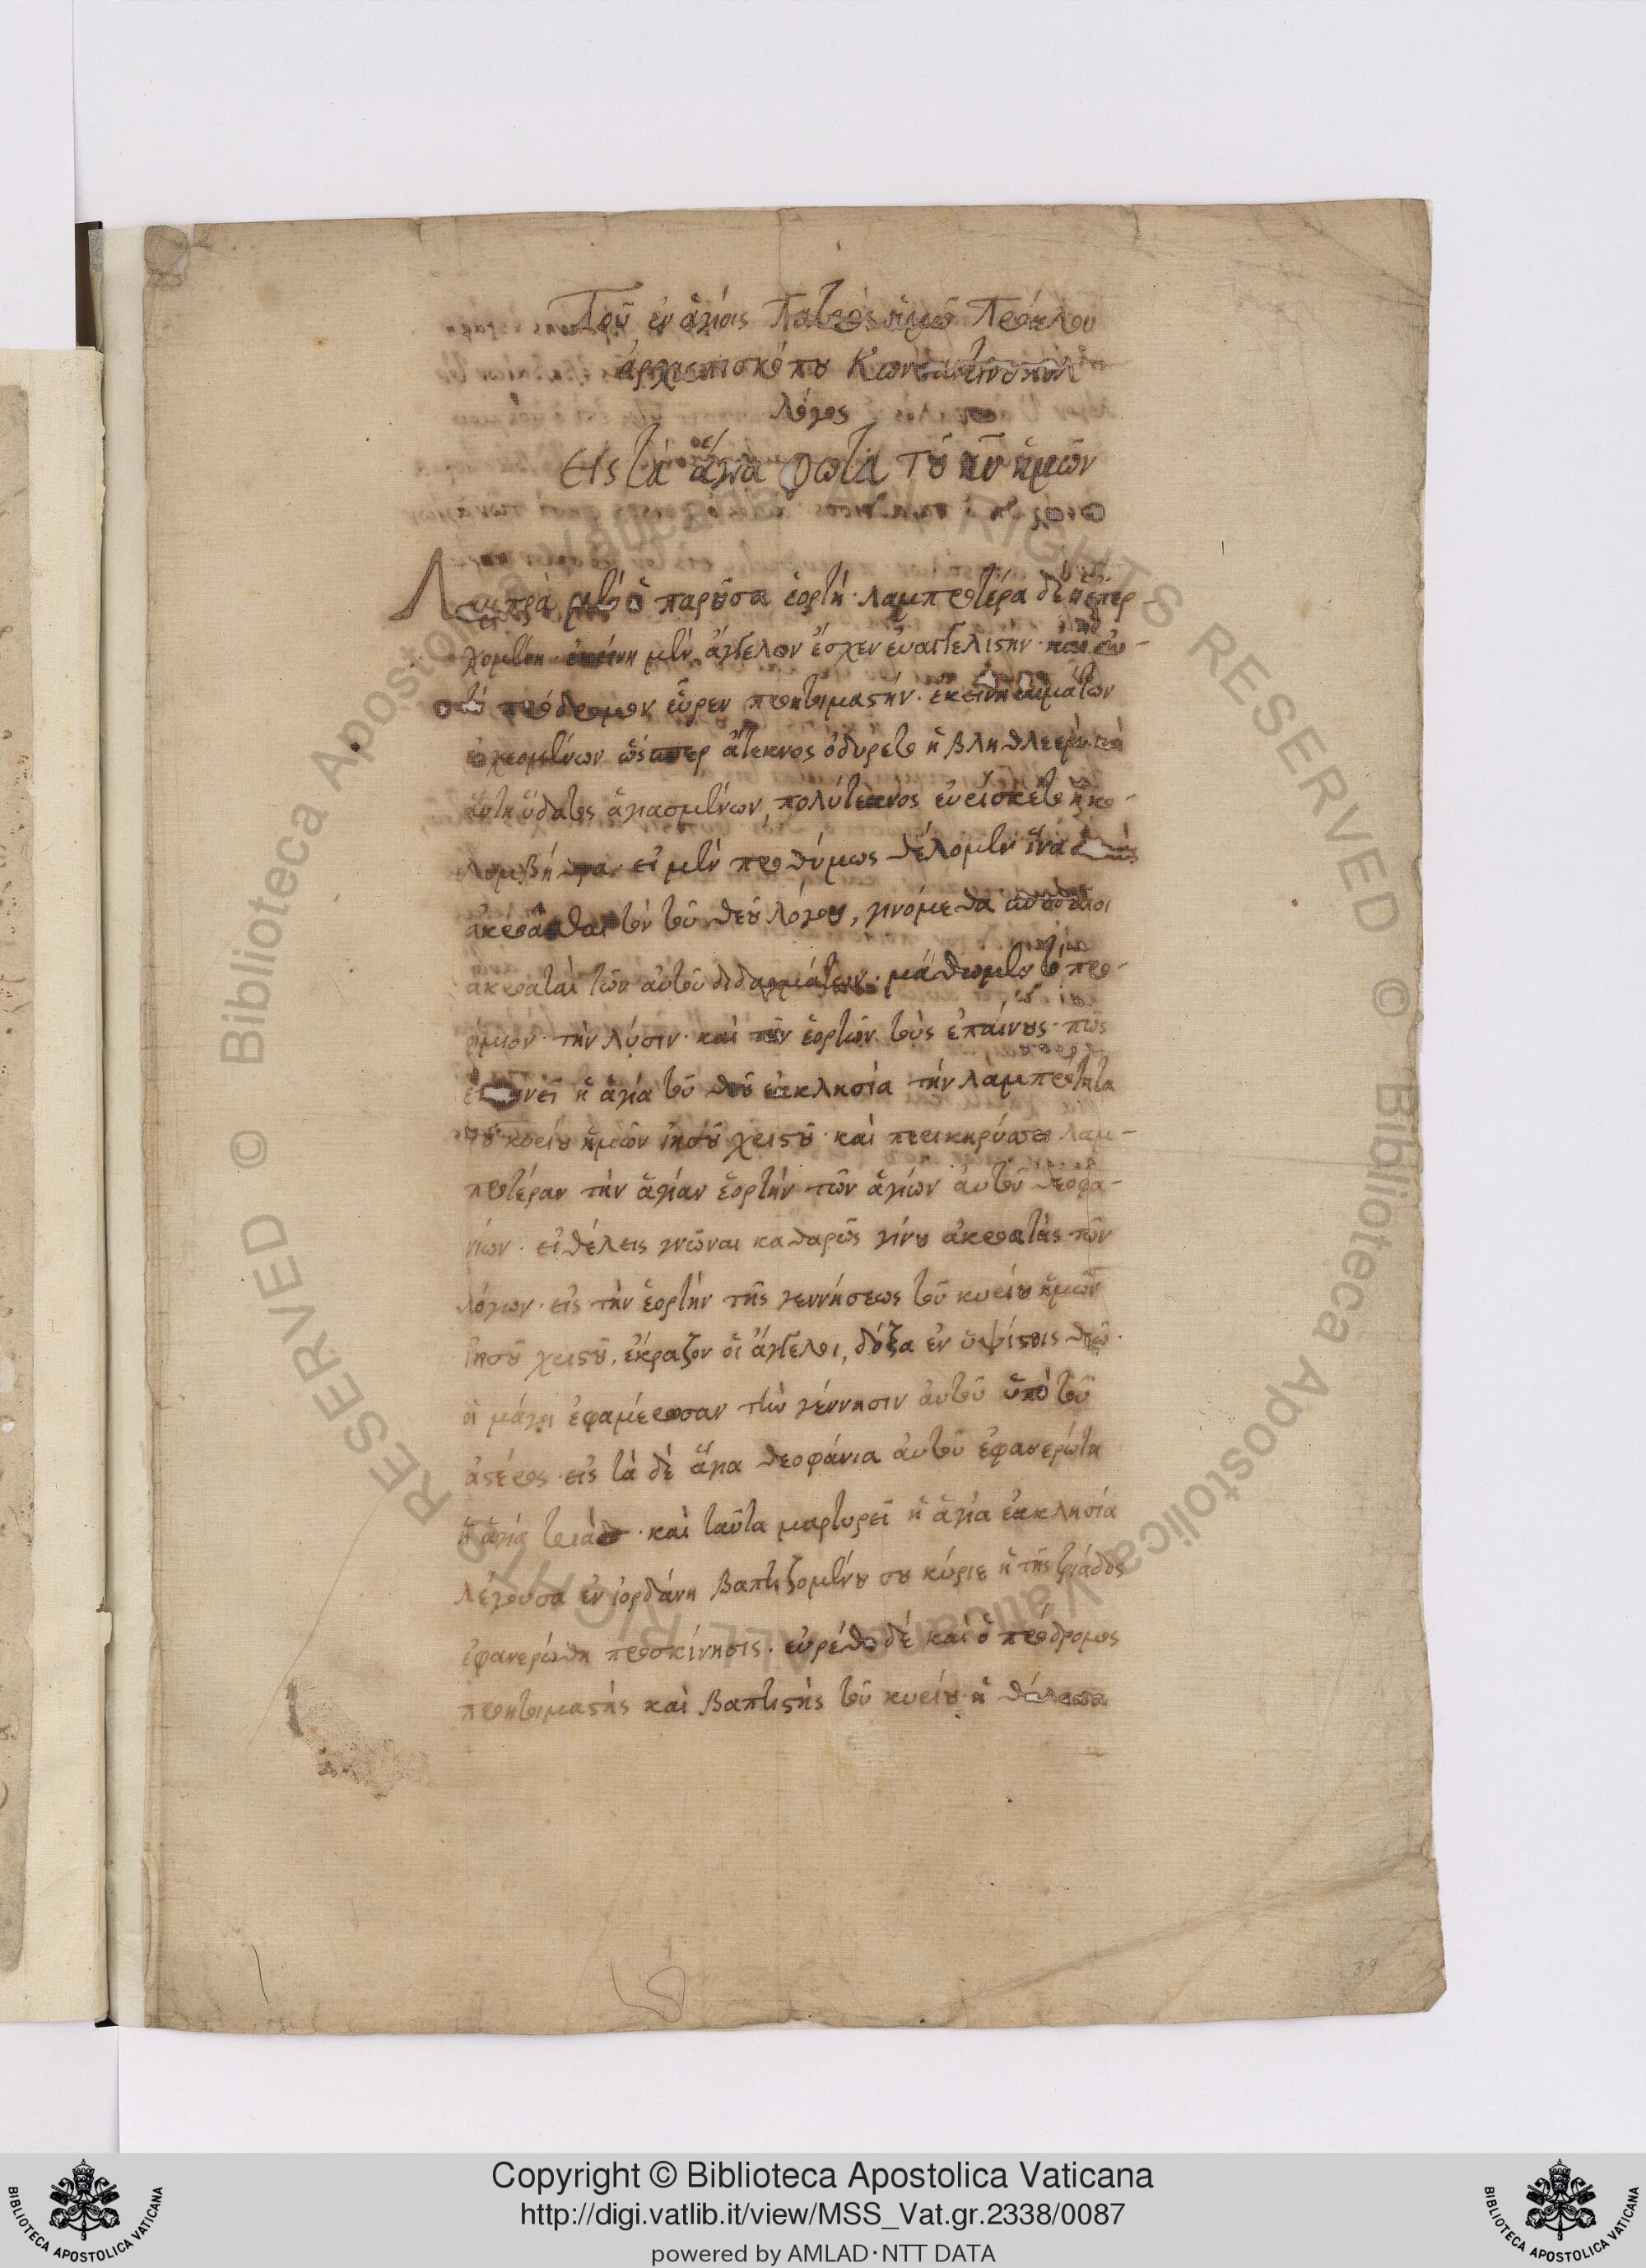 Τοῦ ἐν ἁγίοις Πατρὸς ἡμῶ Πρόκλου
ἀρχιεπισκόπου Κωνσταντινουπόλ
λόγος
Εἰς τὰ ἅγια φῶτα τοῦ κυ ἡμῶν
Λαμπρὰ μὲν ἡ παροῦσα ἑορτή· λαμπροτέρα δὲ ἡ ἐπερ
χομένη· ἐκείνη μὲν ἄγγελον ἔσχεν εὐαγγελιστήν·
πρόδρομον εὗρεν προητιμαστήν· ἐκείνη αἱμάτων
ἐκχεομένων ὥσπερ ἄτεκνος ὀδύρετο ἡ βληθλεὲμ
αὕτη ὕδατος ἁγιασμένων, πολύτεκνος εὑρίσκετο ἡ κο-
λυμβήθρα· εἰ μὲν προθύμως θέλομεν ἵνα
ἀκροᾶσθαι τὸν τοῦ θεοῦ λόγου, γινόμεθα
ἀκροαταὶ τῶν αὐτοῦ διδαγμάτων· μάθωμεν τὸ προ-
οίμιον· τὴν λύσιν· καὶ τῶν ἑορτῶν τοὺς ἐπαίνους· πῶς
ἡ ἁγία τοῦ θεοῦ ἐκκλησία τὴν λαμπρότητα
τοῦ κυρίου ἡμῶν ἰησοῦ χριστοῦ· καὶ περικηρύττει λαμ-
προτέραν τὴν ἁγίαν ἑορτὴν τῶν ἁγίων αὐτοῦ θεοφα-
νίων· εἰ θέλεις γνῶναι καθαρῶς γίνου ἀκροατὴς τῶν
λόγων· εἰς τὴν ἑορτὴν τῆς γεννήσεως τοῦ κυρίου ἡμῶν
ἰησοῦ χριστοῦ, ἔκραζον οἱ ἄγγελοι, δόξα ἐν ὑψίστοις θεῶ·
οἱ μάγοι ἐφαμέρωσαν τὴν γέννησιν αὐτοῦ ὑπὸ τοῦ
ἀστέρος· εἰς τὰ δὲ ἅγια θεοφάνια αὐτοῦ ἐφανερώτη
ἡ ἁγία τριὰς· καὶ ταῦτα μαρτυρεῖ ἡ ἁγία ἐκκλησία
λέγουσα ἐν ἰορδάνη βαπτιζομένου σου κύριε ἡ τῆς τριάδος
ἐφανερώθη προσκίνησις· εὑρέθη δὲ καὶ ὁ πρόδρομος
προητιμαστὴς καὶ βαπτιστὴς τοῦ κυρίου· ἡ θάλασσα
39
Copyright © Biblioteca Apostolica Vaticana
http://digi.vatlib.it/view/MSS_Vat.gr.2338/0087
powered by AMLAD·NTT DATA
© Biblioteca Apostolica Vaticana ALL RIGHTS RESERVED
© Biblioteca Apostolica Vaticana ALL RIGHTS RESERVED
BIBLIOTECA APOSTOLICA VATICANA
BIBLIOTECA APOSTOLICA VATICANA